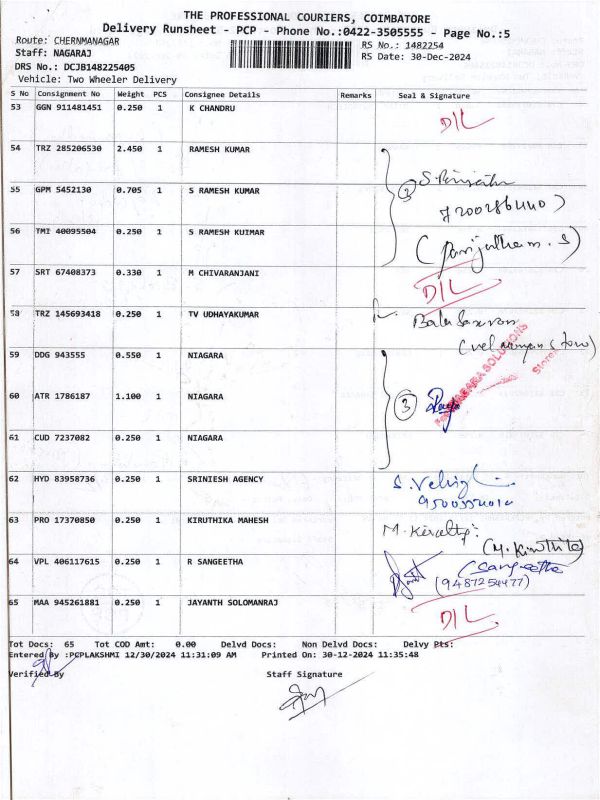 THE PROFESSIONAL COURIERS, COIMBATORE
Delivery Runsheet - PCP - Phone No.:0422-3505555 - Page No.:5
Route: CHERNMANAGAR
RS No.: 1482254
Staff: NAGARAJ
RS Date: 30-Dec-2024
DRS No.: DCJB148225405
Vehicle: Two Wheeler Delivery
S No Consignment No Weight PCS Consignee Details Remarks Seal & Signature
53 GGN 911481451 0.250 1 K CHANDRU D/L
54 TRZ 285206530 2.450 1 RAMESH KUMAR
55 GPM 5452130 0.705 1 S RAMESH KUMAR
56 TMI 40095504 0.250 1 S RAMESH KUIMAR (Parijatham.S)
57 SRT 67408373 0.330 1 M CHIVARANJANI D/L
58 TRZ 145693418 0.250 1 TV UDHAYAKUMAR
59 DDG 943555 0.550 1 NIAGARA
60 ATR 1786187 1.100 1 NIAGARA 3
61 CUD 7237082 0.250 1 NIAGARA
62 HYD 83958736 0.250 1 SRINIESH AGENCY
63 PRO 17370850 0.250 1 KIRUTHIKA MAHESH
64 VPL 406117615 0.250 1 R SANGEETHA (Sangeetha
(9487254477)
65 MAA 945261881 0.250 1 JAYANTH SOLOMANRAJ D/L
Tot Docs: 65 Tot COD Amt: 0.00 Delvd Docs: Non Delvd Docs: Delvy Pts:
Entered By :PCPLAKSHMI 12/30/2024 11:31:09 AM Printed On: 30-12-2024 11:35:48
Verified By Staff Signature